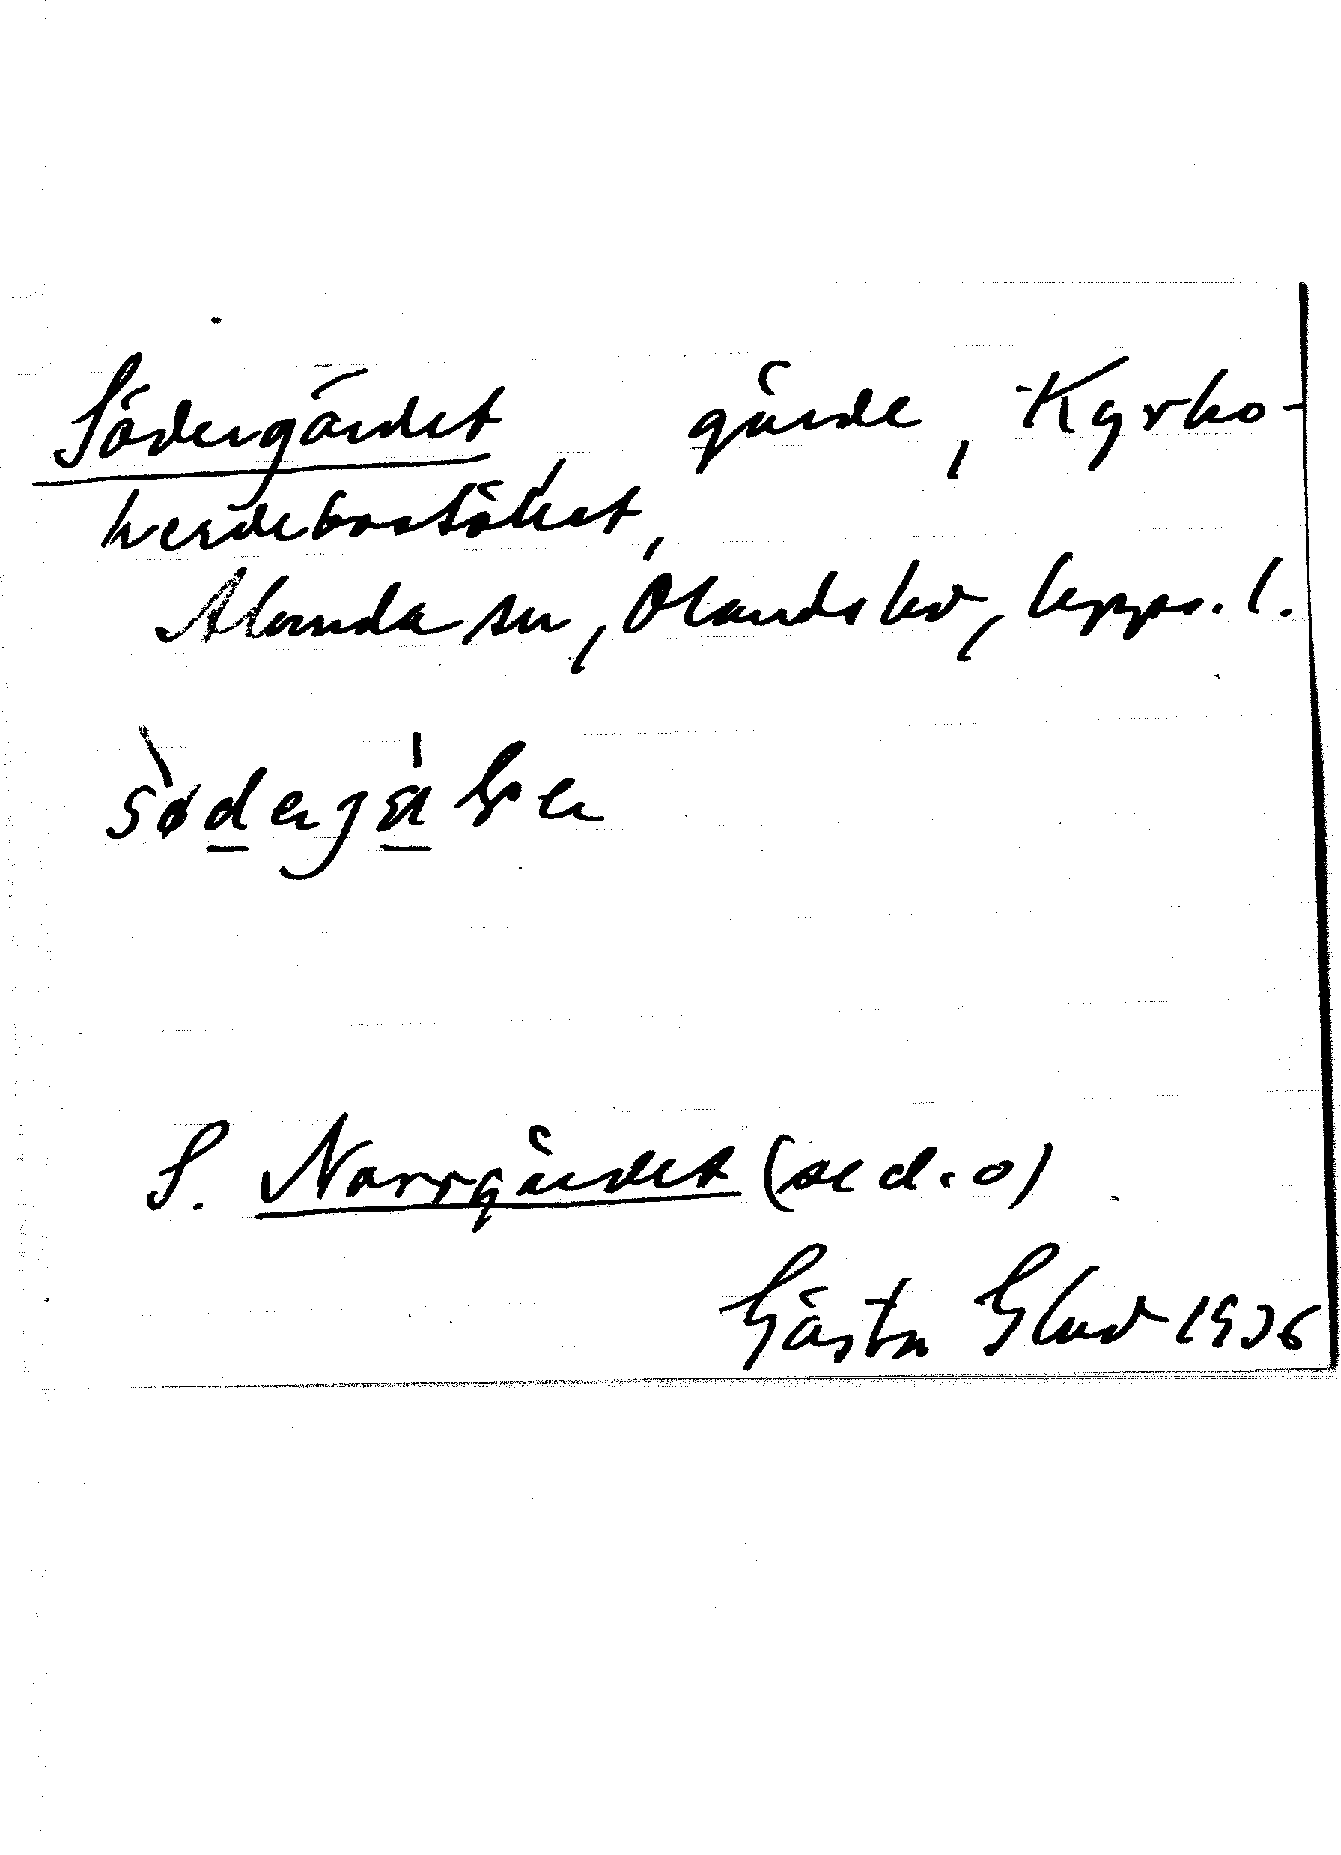 Södergärdet, gärde, Kyrko-
herdebostället,
Alunda sn, Olands hd, Upps. l.
S. Norrgärdet (se d. o)
Gösta Glad 1936